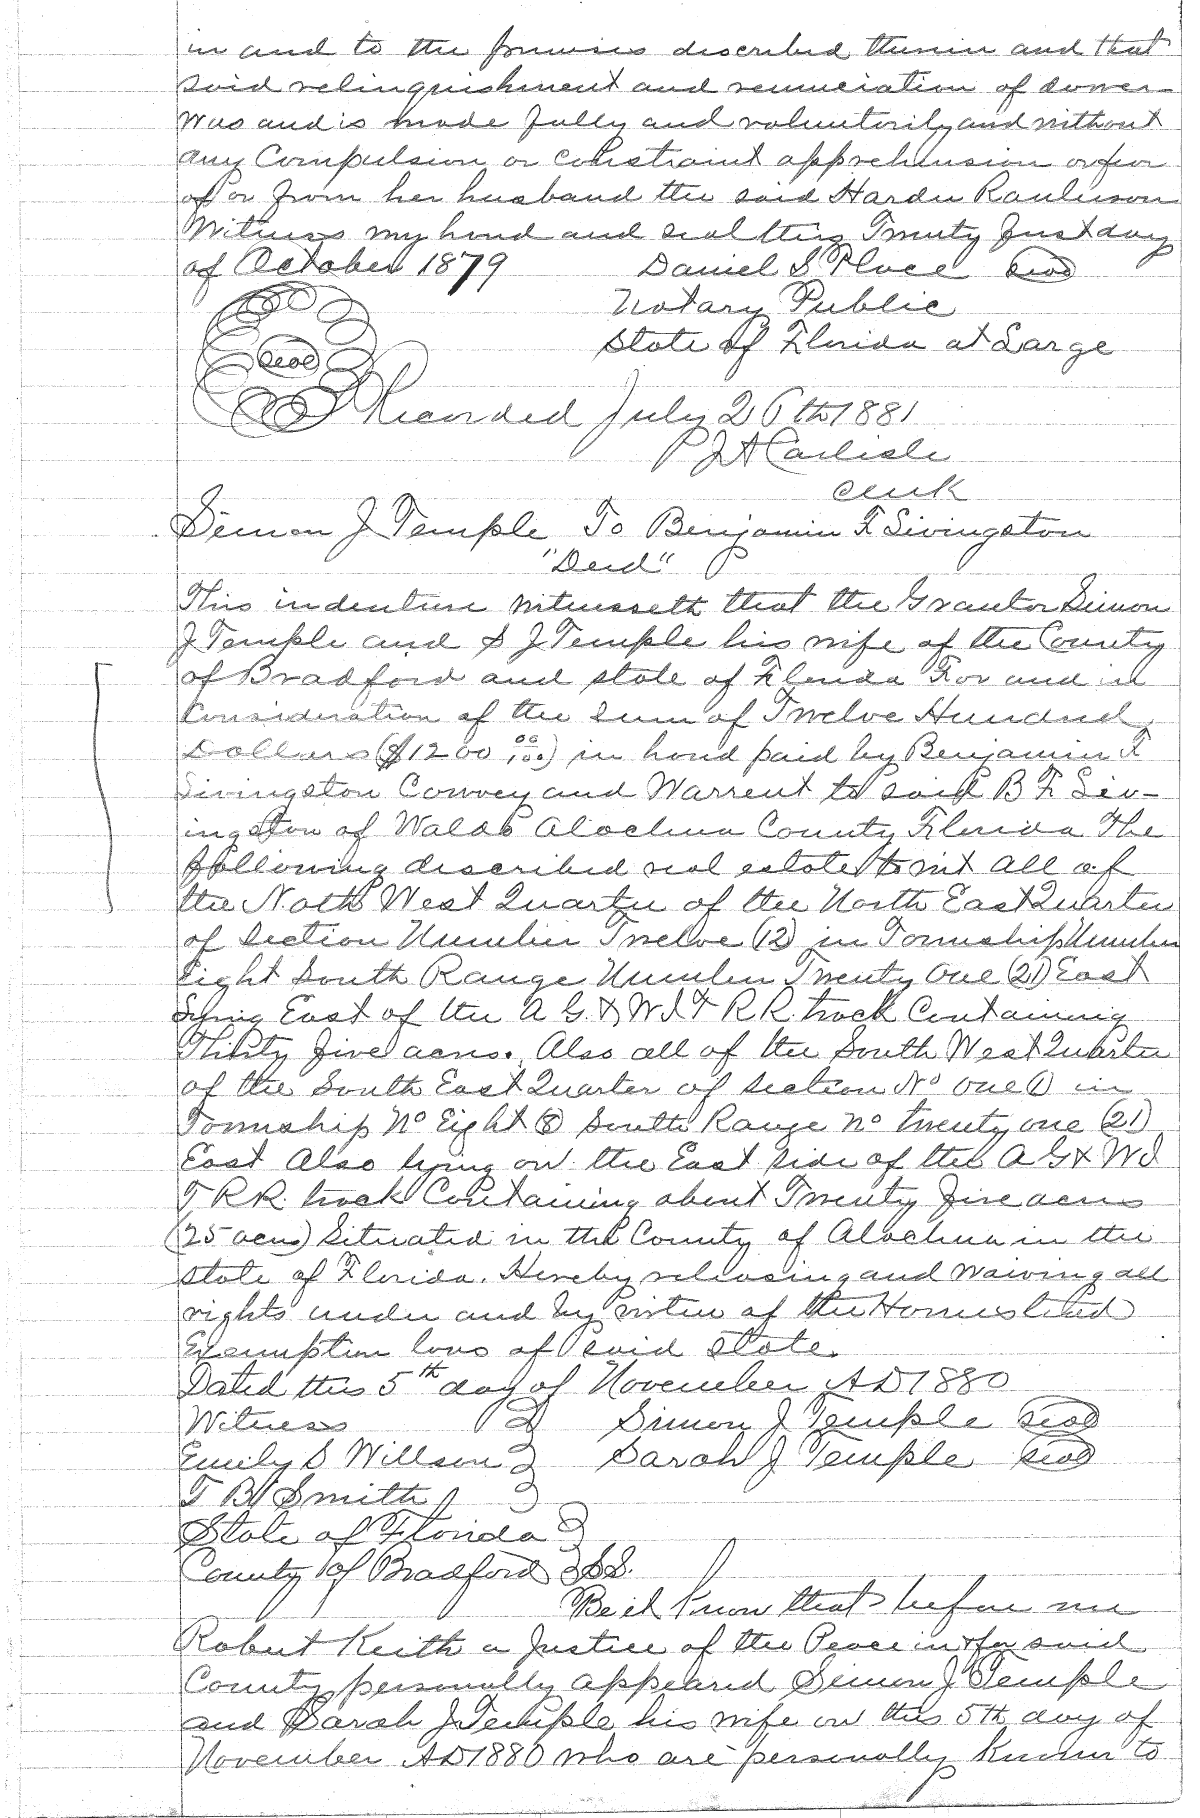 in and to the premises described therein and that
said relinquishment and renunciation of dower
was and is made fully and voluntarily and without
any Compulsion or constraint apprehension or fear
of or from her husband the said Hardee Raulerson
Witness my hand and seal this Twenty first day
of October 1879 Daniel S Place seal
Notary Public
State of Florida at Large
seal
Recorded July 26th 1881
P J A Carlisle
clerk
Simon J Temple To Benjamin F Livingston
"Deed"
This indenture witnesseth that the Grantor Simon
J Temple and S J Temple his wife of the County
of Bradford and state of Florida For and in
Consideration of the sum of Twelve Hundred
Dollars ($1200 00/100) in hand paid by Benjamin F
Livingston Convey and Warrent to said B F Liv-
ingston of Waldo Alachua County Florida The
following described real estate to wit all of
the North West Quarter of the North East Quarter
of Section Number Twelve (12) in Township Number
Eight South Range Number Twenty One (21) East
Lying East of the A G & W I T R R. track Containing
Thirty five acres. Also all of the South West Quarter
of the South East Quarter of Section No One (1) in
Township No Eight (8) South Range no twenty one (21)
East Also lying on the East side of the A G & W I
T R R. track Containing about Twenty five acres
(25 acres) Situated in the County of Alachua in the
state of Florida. Hereby releasing and waiving all
rights under and by virtue of the Homestead
Exemption laws of said State.
Dated this 5th day of November AD 1880
Witness Simon J Temple seal
Emily S Willson Sarah J Temple seal
T B Smith
State of Florida
County of Bradford SS.
Be it Know that before me
Robert Keith a Justice of the Peace in & for said
County personally appeared Simon J Temple
and Sarah J Temple his wife on this 5th day of
November AD 1880 who are personally known to